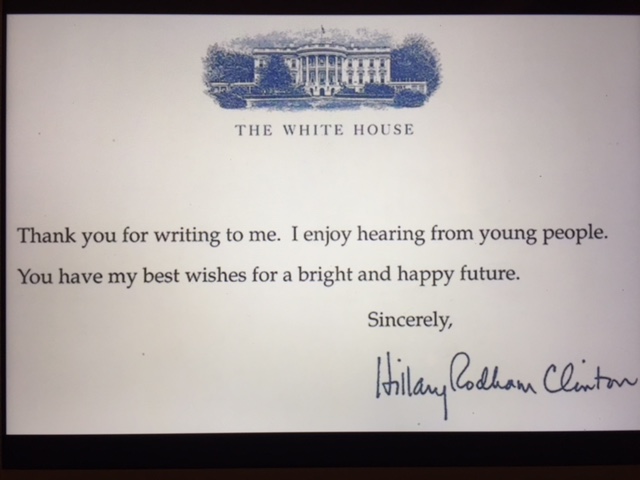 THE WHITE HOUSE
Thank you for writing to me. I enjoy hearing from young people.
You have my best wishes for a bright and happy future.
Sincerely,
Hillary Rodham Clinton